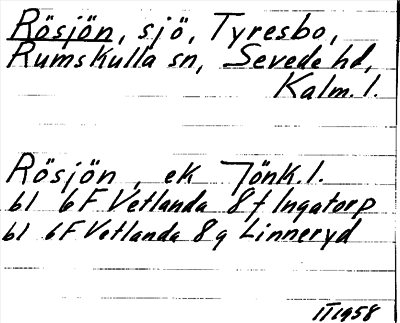 Rösjön, sjö, Tyresbo,
Rumskulla sn, Sevede hd,
Kalm. l.
Rösjön, ek Jönk. l.
bl 6F Vetlanda 8f Ingatorp
bl 6F Vetlanda 8g Linneryd
II 1958